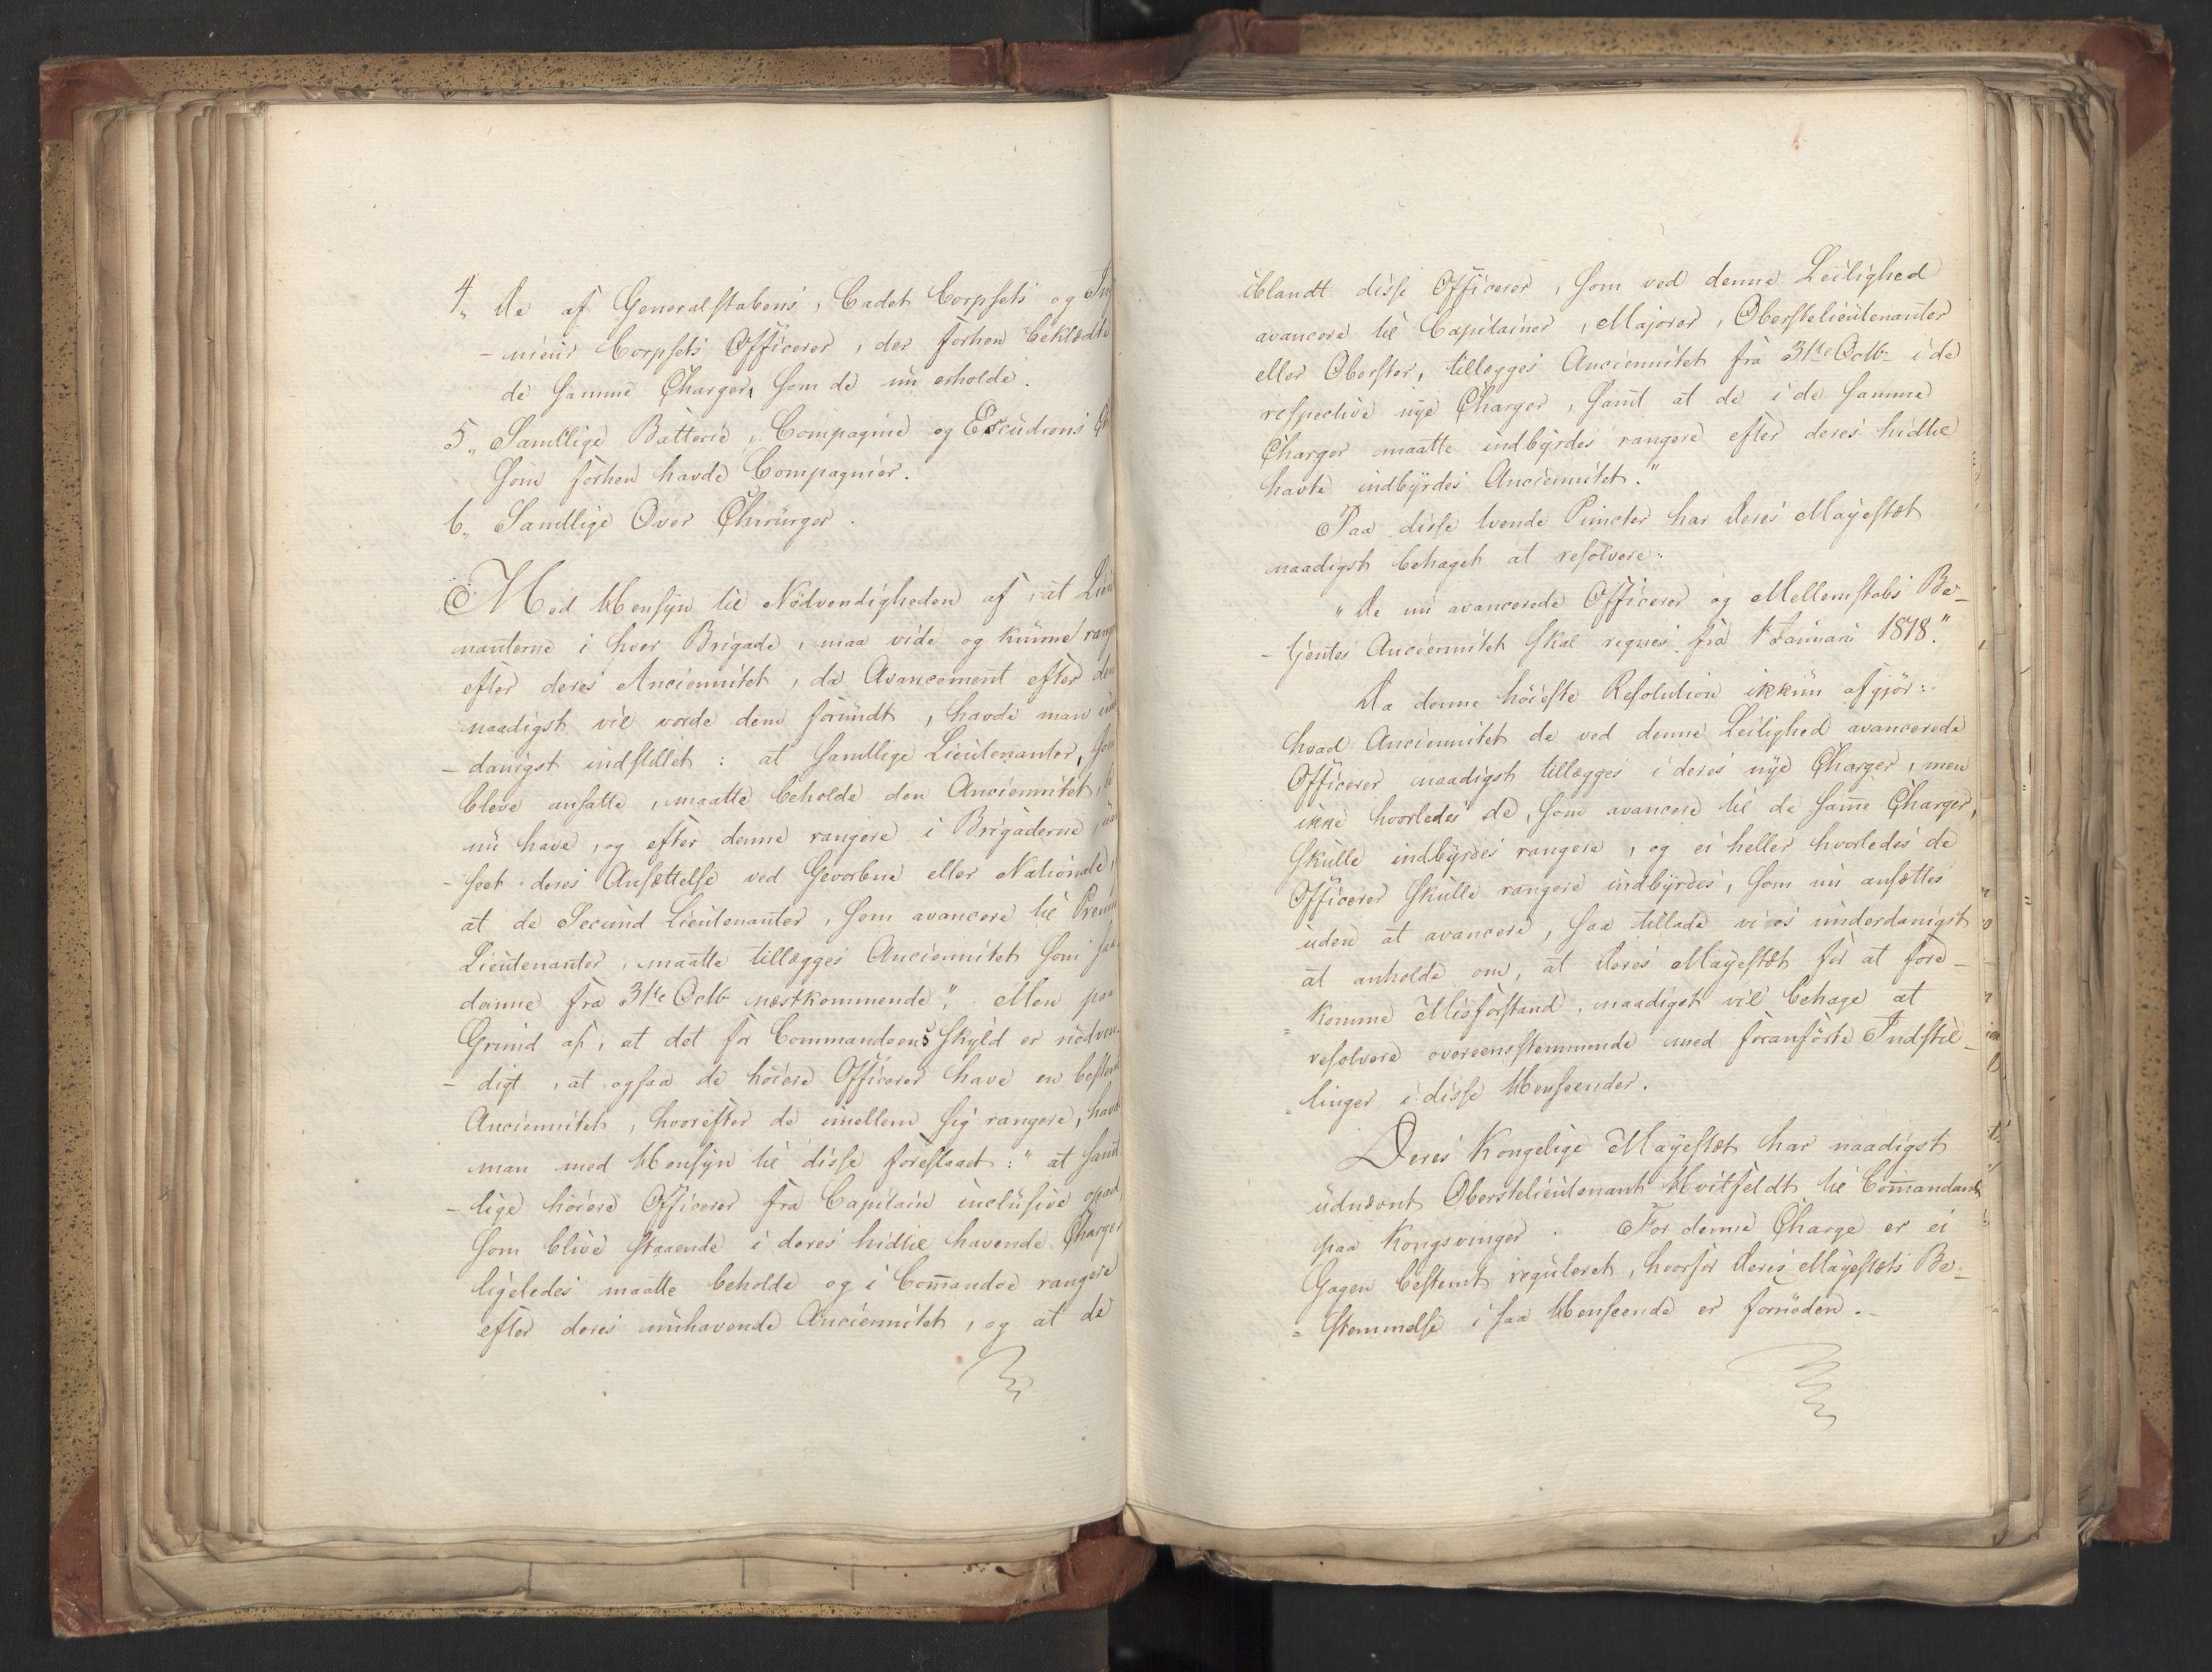 4„ De af Generalstabens, Cadet Corpsets og In
- nieur Corpsets Officerer, der forhen beklædte
de samme Charger, som de nu erholde.
5„ Samtlige Batterie, Compagnie og Escudrons
som forhen havde Compagnier.
6„ Samtlige Over Chirurger.
Med Hensyn til Nödvendigheden af, at Lieu
nanterne i hver Brigade, maa vide og kunne rang
efter deres Anciennitet, da Avancement efter den
naadigst vil vorde dem forundt, havde man un
- danigst indstillet: at samtlige Lieutenanter, som
bleve ansatte, maatte beholde den Anciennitet, de
nu have, og efter denne rangere i Brigaderne, uan
- seet deres Ansættelse ved Gevorbne eller Nationale,
at de Secund Lieutenanter, som avancere til Premi
Lieutenanter, maatte tillægges Anciennitet som saa
danne fra 31te Octb næstkommende". Men paa
Grund af, at det for Commandoens Skyld er nödven
- digt, at ogsaa de höiere Officerer have en bestemt
Anciennitet, hvorefter de imellem sig rangere, havde
man med Hensyn til disse foreslaaet: "at samt
- lige höiere Officerer fra Capitain inclusive opad,
som blive staaende i deres hidtil havende Charger
ligeledes maatte beholde og i Com̄andoe rangere
efter deres nuhavende Anciennitet, og at de
iblandt disse Officerer, som ved denne Leilighed
avancere til Capitainer, Majorer, Oberstelieutenanter
eller Oberster, tillægges Anciennitet fra 31te Octb i de
respective nye Charger, samt at de i de samme
Charger maatte indbyrdes rangere efter deres hidtil
havte indbyrdes Anciennitet."
Paa disse tvende Puncter har Deres Mayestæt
naadigst behaget at resolvere:
"De nu avancerede Officerer og Mellemstabs Be-
- tjentes Anciennitet skal regnes fra 1 Januari 1818."
Da denne höieste Resolution ikkun afgjör:
hvad Anciennitet de ved denne Leilighed avancerede
Officerer naadigst tillægges i deres nye Charger, men
ikke hvorledes de, som avancere til de sam̄e Charger,
skulle indbyrdes rangere, og ei heller hvorledes de
Officerer skulle rangere indbyrdes, som nu ansættes
uden at avancere, saa tillade vi os underdanigst
at anholde om, at Deres Mayestæt for at fore-
= komme Misforstand, naadigst vil behage at
resolvere overeensstemmende med foranförte Indstil-
= linger i disse Henseender.
Deres Kongelige Mayestæt har naadigst
udnævnt Oberstelieutenant Hvitfeldt til Com̄andant
paa Kongsvinger. For denne Charge er ei
Gagen bestemt reguleret, hvorfor Deres Mayestæts Be-
= stemmelse i saa Henseende er fornöden.